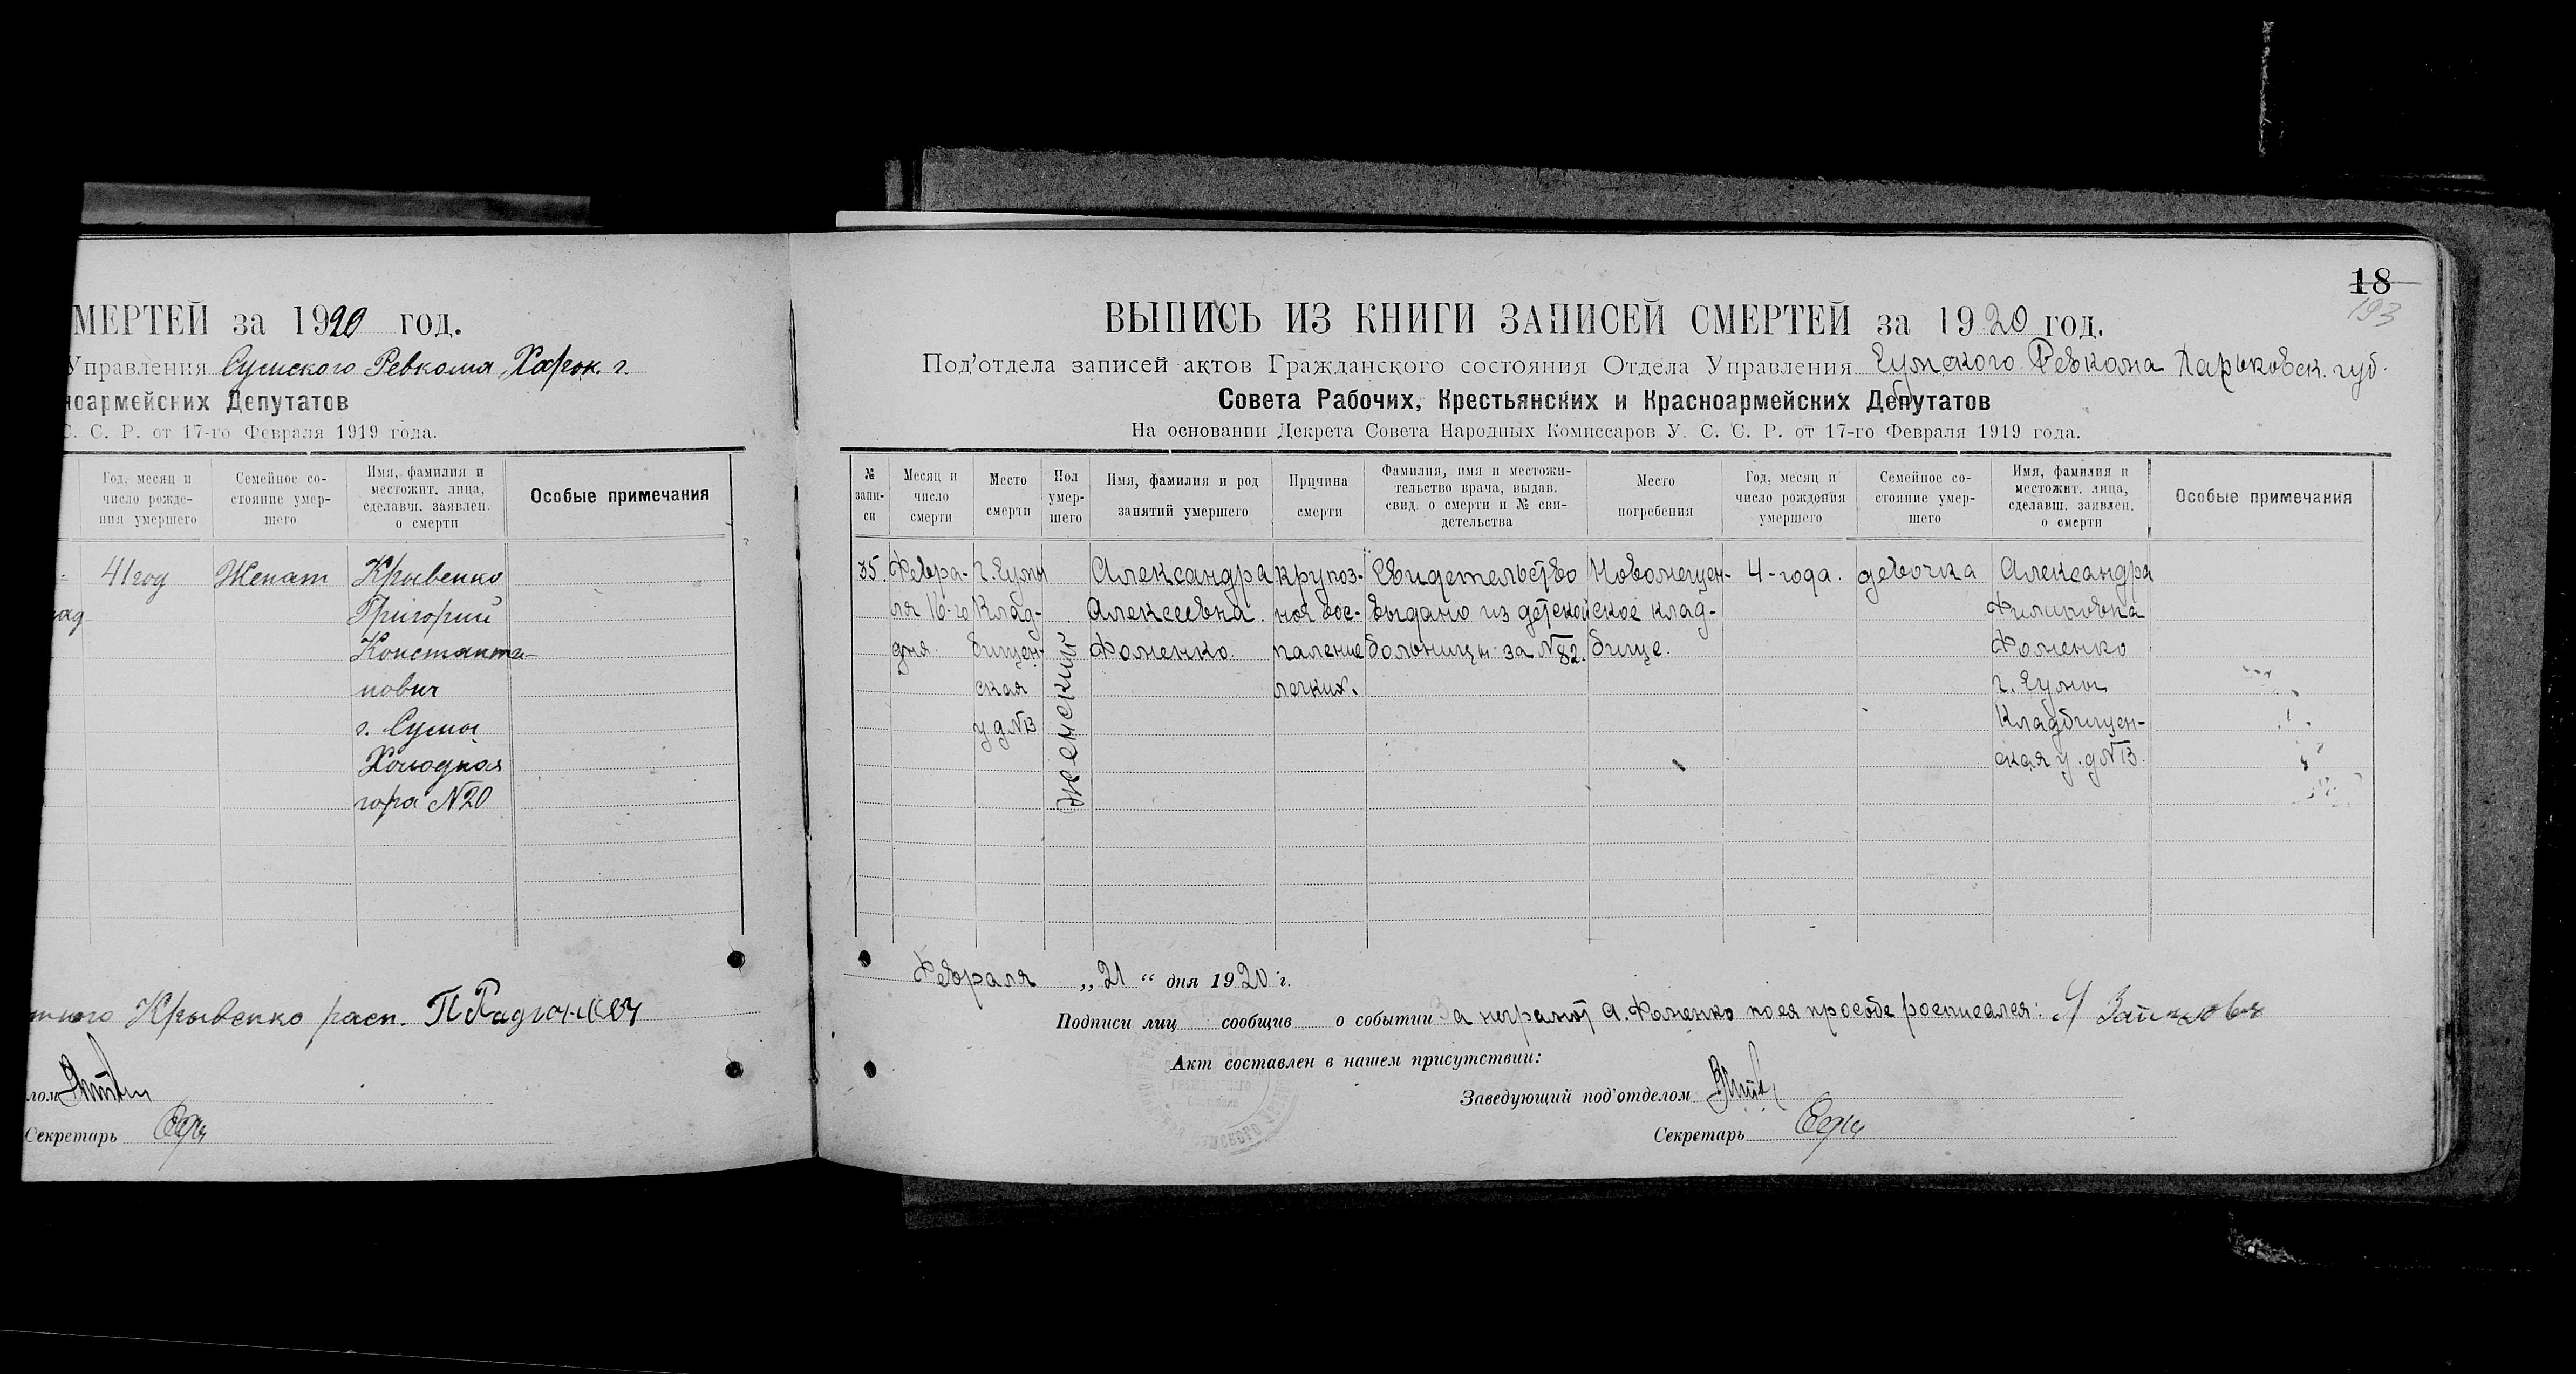 МЕРТЕЙ за 1920 год.
Управления Сумского Ревкома Харьк. г.
ноармейских Депутатов
С. С. Р. от 17-го Февраля 1919 года.
Год, месяц и
число рожде-
ния умершего
Семейное со-
стояние умер-
шего
Имя, фамилия и
местожит. лица,
сделавш. заявлен.
о смерти
Особые примечания
41 год
Женат
Крывенко
Григорий
Константи-
нович
г. Сумы
Холодная
гора №20
Крывенко расп.
Секретарь
18
193
ВЫПИСЬ ИЗ КНИГИ ЗАПИСЕЙ СМЕРТЕЙ за 1920 год.
Под'отдела записей актов Гражданского состояния Отдела Управления Сумского Ревкома Харьковск. губ.
Совета Рабочих, Крестьянских и Красноармейских Депутатов
На основании Декрета Совета Народных Комиссаров У. С. С. Р. от 17-го Февраля 1919 года.
№
запи-
си
Месяц и
число
смерти
Место
смерти
Пол
умер-
шего
Имя, фамилия и род
занятий умершего
Причина
смерти
Фамилия, имя и местожи-
тельство врача, выдав.
свид. о смерти и № сви-
детельства
Место
погребения
Год, месяц и
число рождения
умершего
Семейное со-
стояние умер-
шего
Имя, фамилия и
местожит. лица,
сделавш. заявлен.
о смерти
Особые примечания
35
Февра-
ля 16-го
дня
г. Сумы
Клад-
бищен-
ская
у д №13
Женский
Александра
Алексеевна
Фоменко.
крупоз-
ное вос-
паление
легких.
Свидетельство
выдано из детской
больницы за №82.
Новомещен-
ское клад-
бище.
4-года.
девочка
Александра
Филиповна
Фоменко
г. Сумы
Кладбищен-
ская у. д №13.
Февраля „21“ дня 1920 г.
Подписи лиц сообщив о событии За неграмот А. Фоменко по ея просьбе росписался:
Акт составлен в нашем присутствии:
Заведующий под'отделом
Секретарь